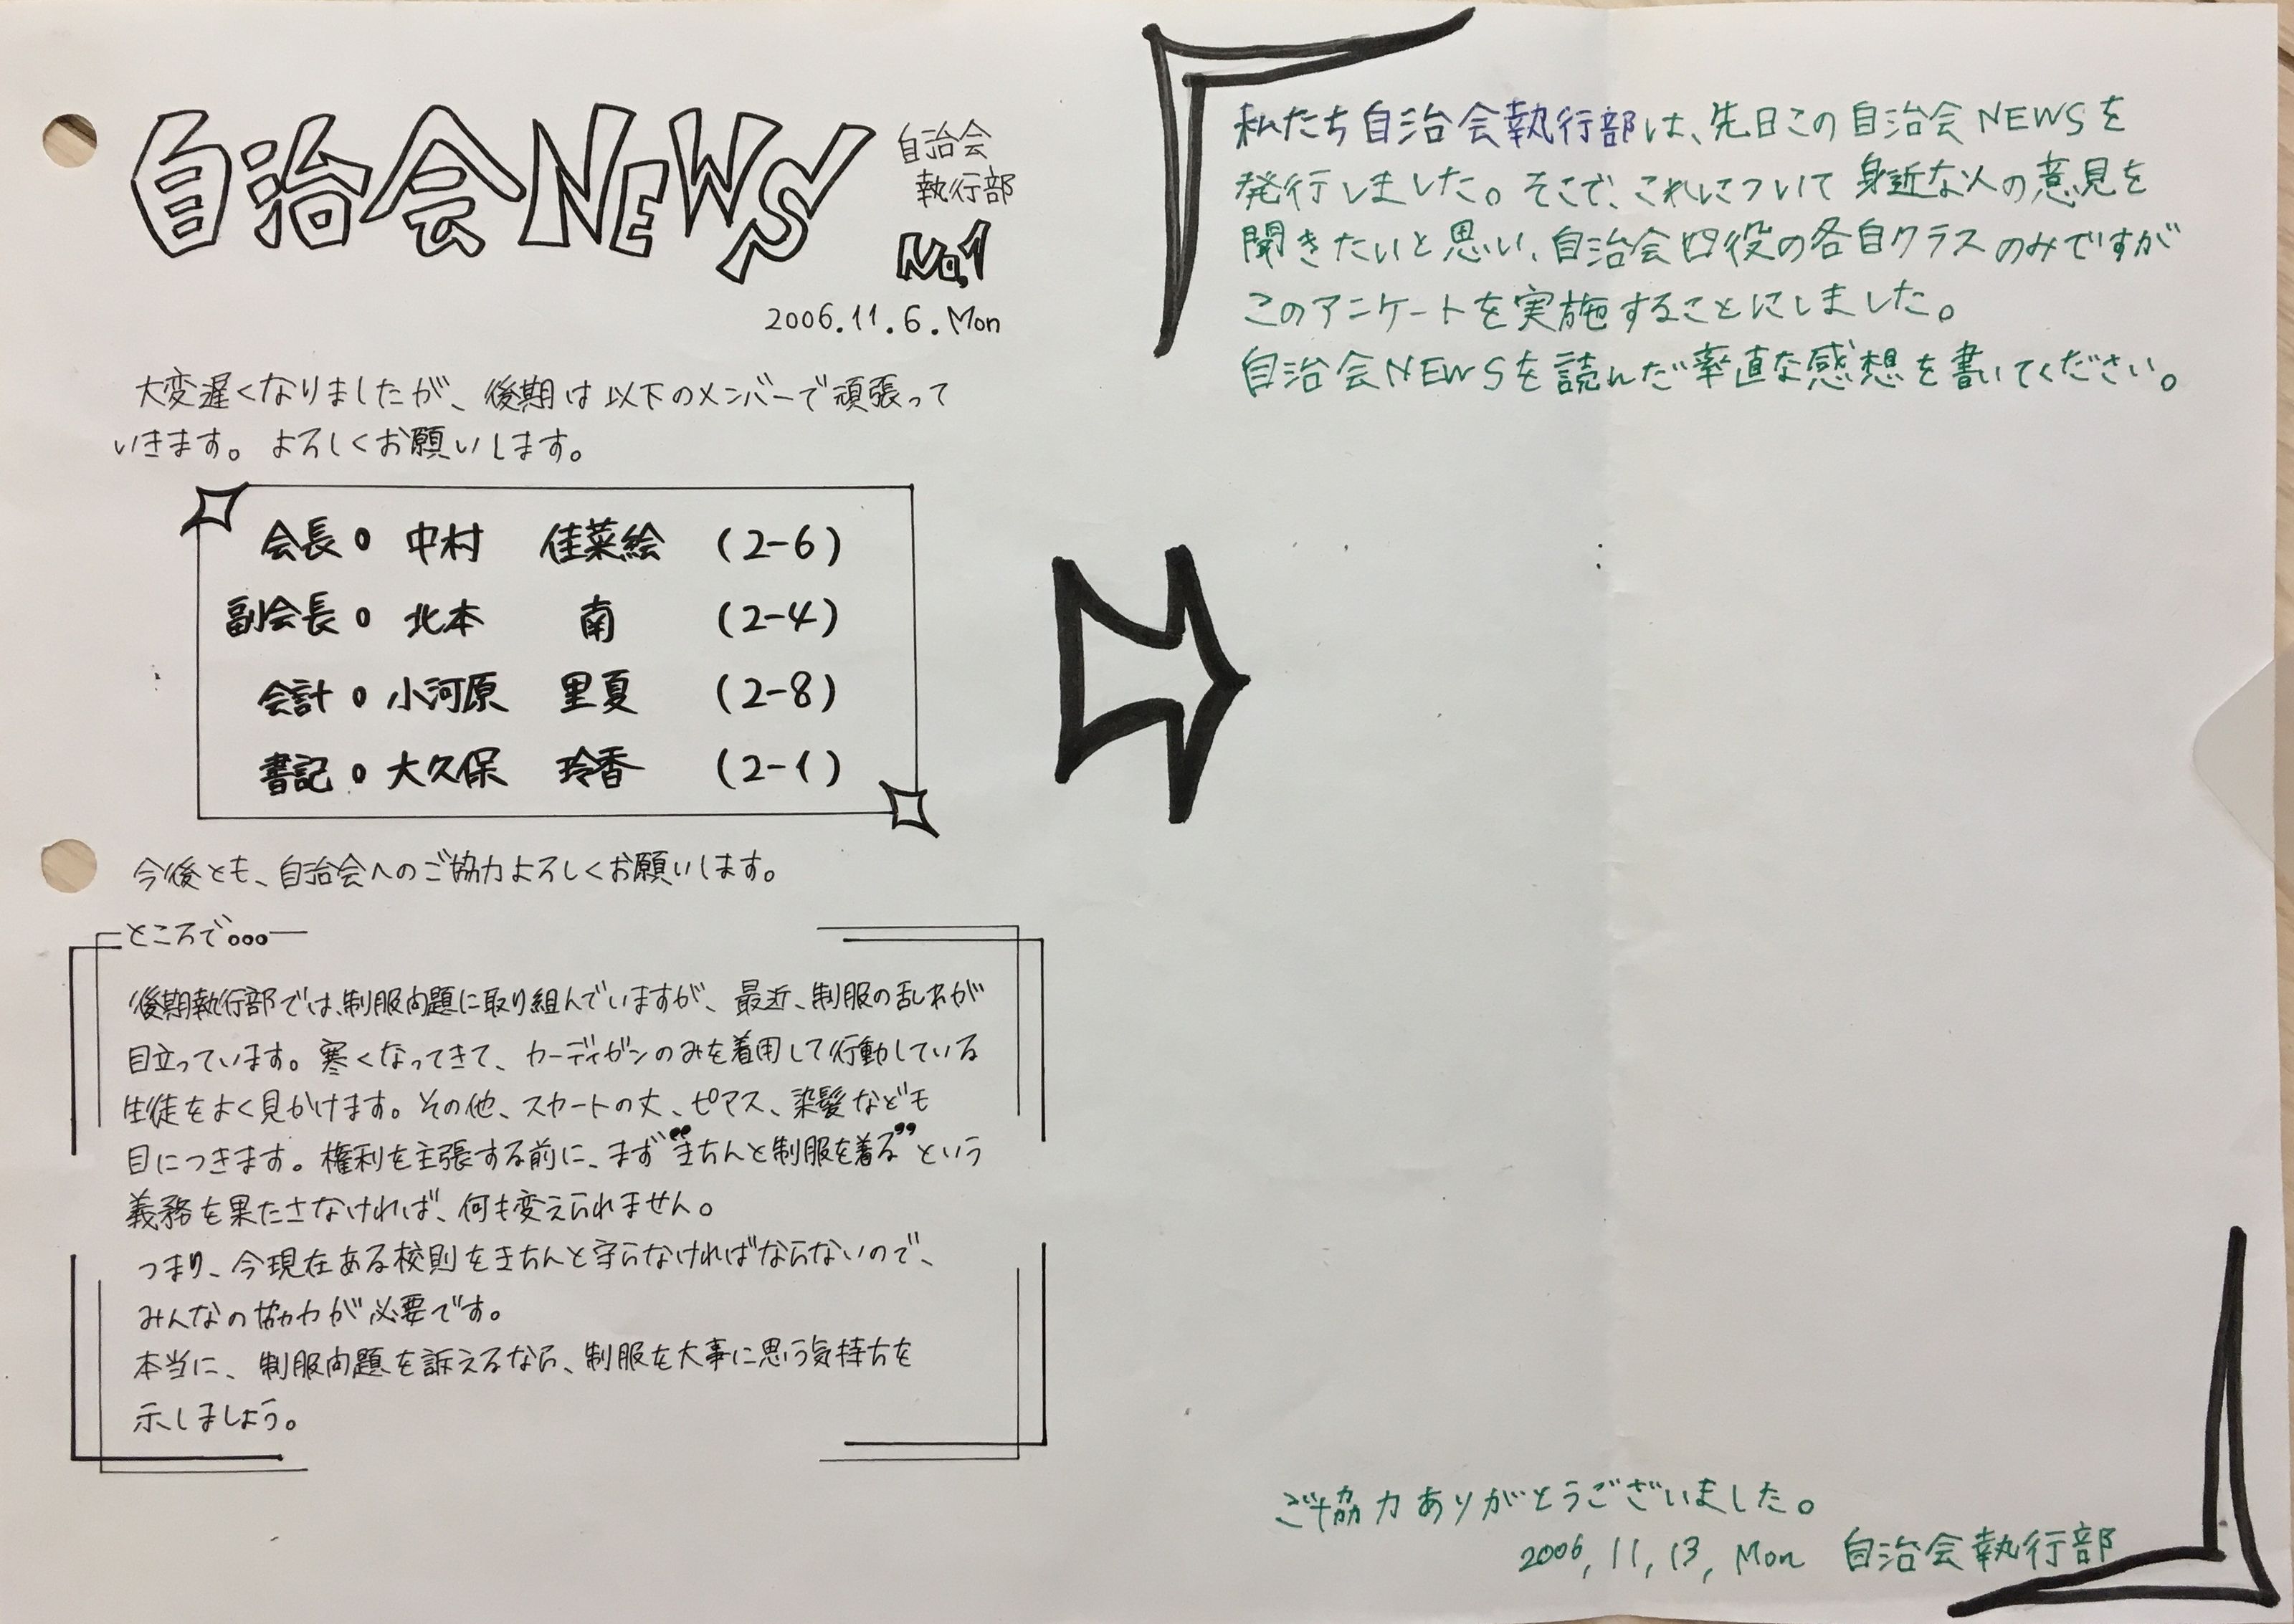 自治会NEWS
自治会
執行部
No.1
2006.11.6.Mon
大変遅くなりましたが、後期は以下のメンバーで頑張って
いきます。よろしくお願いします。
会長。中村 佳菜絵 (2-6)
副会長。北本 南 (2-4)
会計。小河原 里夏 (2-8)
書記。大久保 玲香 (2-1)
今後とも、自治会へのご協力よろしくお願いします。
ところで。。。
後期執行部では、制服問題に取り組んでいますが、最近、制服の乱れが
目立っています。寒くなってきて、カーディガンのみを着用して行動している
生徒をよく見かけます。その他、スカートの丈、ピアス、染髪なども
目につきます。権利を主張する前に、まず“きちんと制服を着る”という
義務を果たさなければ、何も変えられません。
つまり、今現在ある校則をきちんと守らなければならないので、
みんなの協力が必要です。
本当に、制服問題を訴えるなら、制服を大事に思う気持ちを
示しましょう。
私たち自治会執行部は、先日この自治会NEWSを
発行しました。そこで、これについて身近な人の意見を
聞きたいと思い、自治会四役の各自クラスのみですが
このアンケートを実施することにしました。
自治会NEWSを読んだ率直な感想を書いてください。
ご協力ありがとうございました。
2006,11,13,Mon 自治会執行部